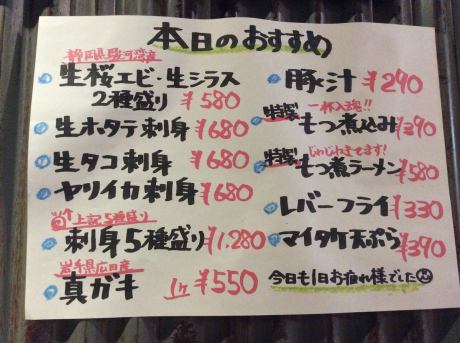 本日のおすすめ
静岡県駿河湾産
生桜エビ・生シラス
2種盛り ¥580
生ホタテ刺身 ¥680
生タコ刺身 ¥680
ヤリイカ刺身 ¥680
上記5種盛り
刺身5種盛り ¥1,280
岩手県広田産
真ガキ 1ヶ ¥550
豚汁 ¥290
一杯入魂!!
特製 もつ煮込み ¥390
特製 じわじわきてます!
もつ煮ラーメン ¥580
レバーフライ ¥330
マイタケ天ぷら ¥390
今日も1日お疲れ様でした